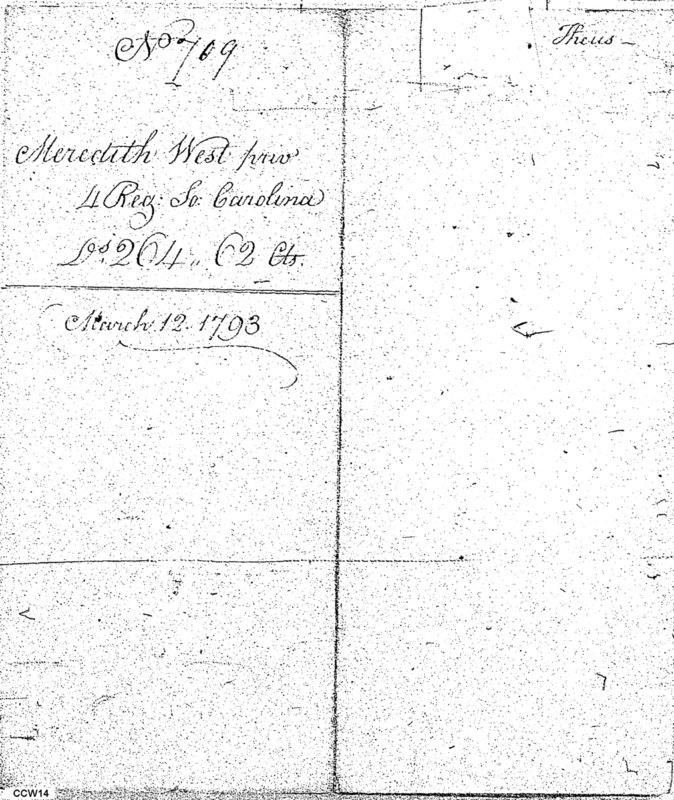 No 709
Meredith West priv
4 Reg: So: Carolina
Ds. 264 „ 62 Cts.
March 12. 1793
Theus
CCW14